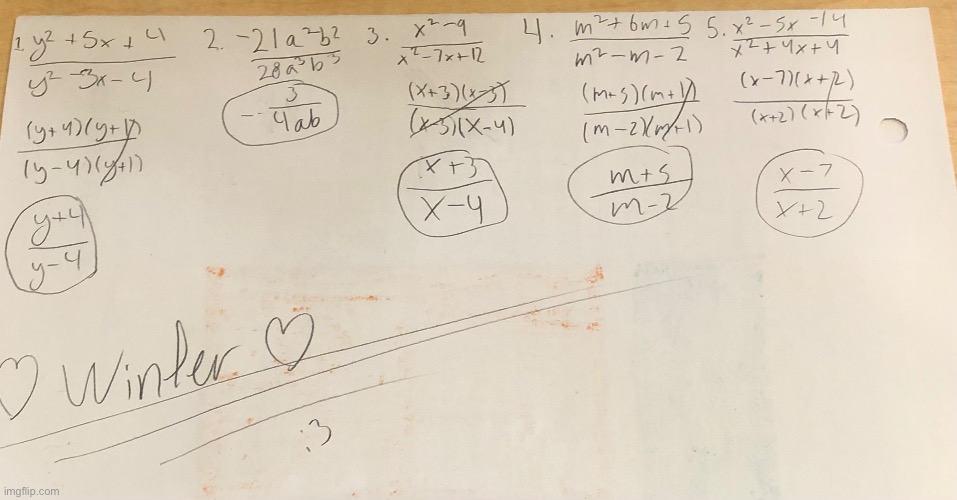 1. y² + 5x + 4 / y² - 3x - 4
(y+4)(y+1) / (y-4)(y+1)
y+4 / y-4
2. -21a²b² / 28a³b³
- 3 / 4ab
3. x² - 9 / x² - 7x + 12
(x+3)(x-3) / (x-3)(x-4)
x+3 / x-4
4. m² + 6m + 5 / m² - m - 2
(m+5)(m+1) / (m-2)(m+1)
m+5 / m-2
5. x² - 5x - 14 / x² + 4x + 4
(x-7)(x+2) / (x+2)(x+2)
x-7 / x+2
♡ Winter ♡
:3
imgflip.com